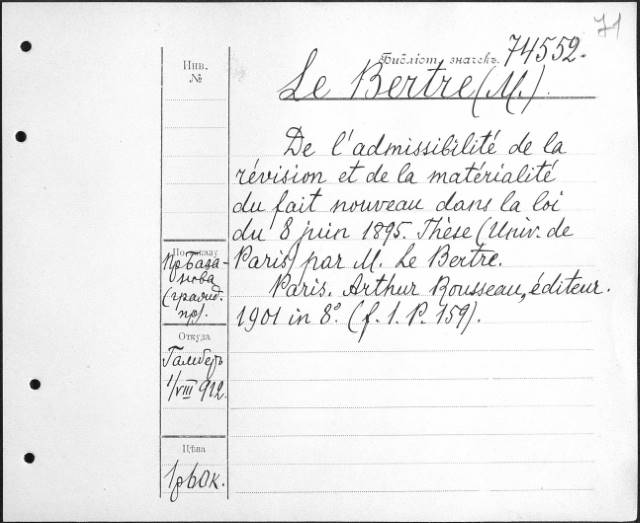 71
Библіот. значекъ. 74552.
Инв.
№
Le Bertre (M.)
De l'admissibilité de la
révision et de la matérialité
du fait nouveau dans la loi
du 8 juin 1895. Thèse (Univ. de
Paris) par M. Le Bertre.
Paris. Arthur Rousseau, éditeur.
1901 in 8º. (f. 1. P. 159).
По заказу
пр База-
нова
(гражд.
пр).
Откуда
Гамберъ
1/VIII 912.
Цѣна
1р 60к.